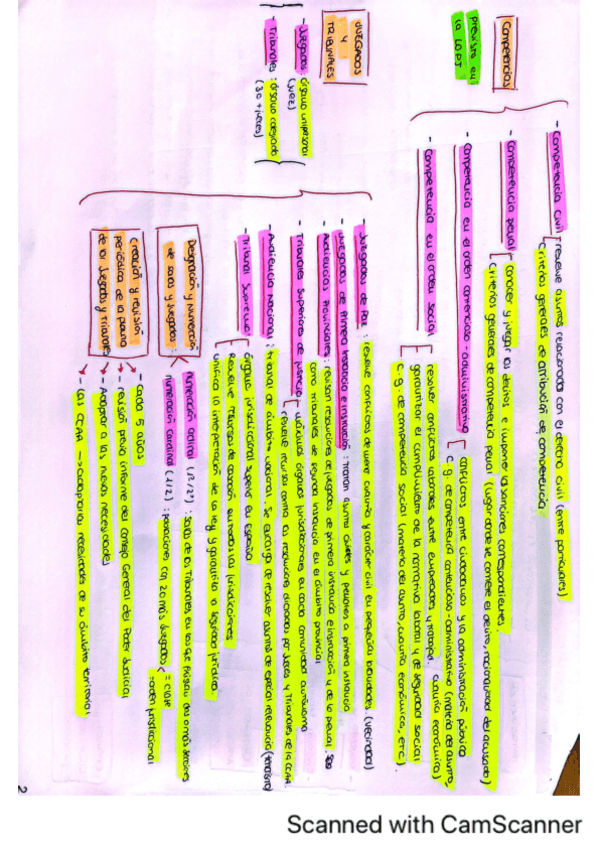 Competencias
previstas en
la LOPJ
- Competencia civil
resuelve asuntos relacionados con el derecho civil (entre particulares)
criterios generales de atribución de competencia
- Competencia penal
conocer y juzgar los delitos e imponer las sanciones correspondientes.
criterios generales de competencia penal (lugar donde se comete el delito, nacionalidad del acusado)
- Competencia en el orden contencioso-administrativo
conflictos entre ciudadanos y la administración pública
c.g. de competencia contencioso-administrativo (materia del asunto, cuantía económica)
- Competencia en el orden social
resolver conflictos laborales entre empresarios y trabajad.
garantizar el cumplimiento de la normativa laboral y de seguridad social
c.g. de competencia social (materia del asunto, cuantía económica, etc.)
JUZGADOS
Y
TRIBUNALES
- Juzgados: órgano unipersonal
(juez)
- Tribunales: órgano colegiado
(3 o + jueces)
- Juzgados de Paz: resuelve conflictos de menor cuantía y carácter civil en pequeñas localidades (vecindad)
- Juzgados de Primera Instancia e instrucción: tratan asuntos civiles y penales a primera instancia
- Audiencias Provinciales: revisan resoluciones de juzgados de primera instancia e instrucción y de lo penal. Son
como tribunales de segunda instancia en el ámbito provincial
- Tribunales Superiores de Justicia
máximos órganos jurisdiccionales en cada comunidad autónoma
resuelve recursos contra las resoluciones dictadas por Jueces y Tribunales de la CCAA
- Audiencia Nacional: tribunal de ámbito nacional. Se encarga de resolver asuntos de especial relevancia (terrorismo)
- Tribunal Supremo
órgano jurisdiccional superior en España
Resuelve recursos de casación en todas las jurisdicciones
unifica la interpretación de la ley y garantiza la seguridad jurídica.
Designación y numeración
de salas y juzgados:
numeración ordinal (1ª/2ª): salas de los tribunales en los que existan dos o más secciones
numeración cardinal (1/2): poblaciones con 2 o más juzgados
= clase
= orden jurisdiccional
Creación y revisión
periódica de la planta
de los Juzgados y Tribunales
- Cada 5 años
- revisión previo informe del Consejo General del Poder Judicial
- Adaptar a las nuevas necesidades
- Las CCAA → necesidades de su ámbito territorial
2
Scanned with CamScanner